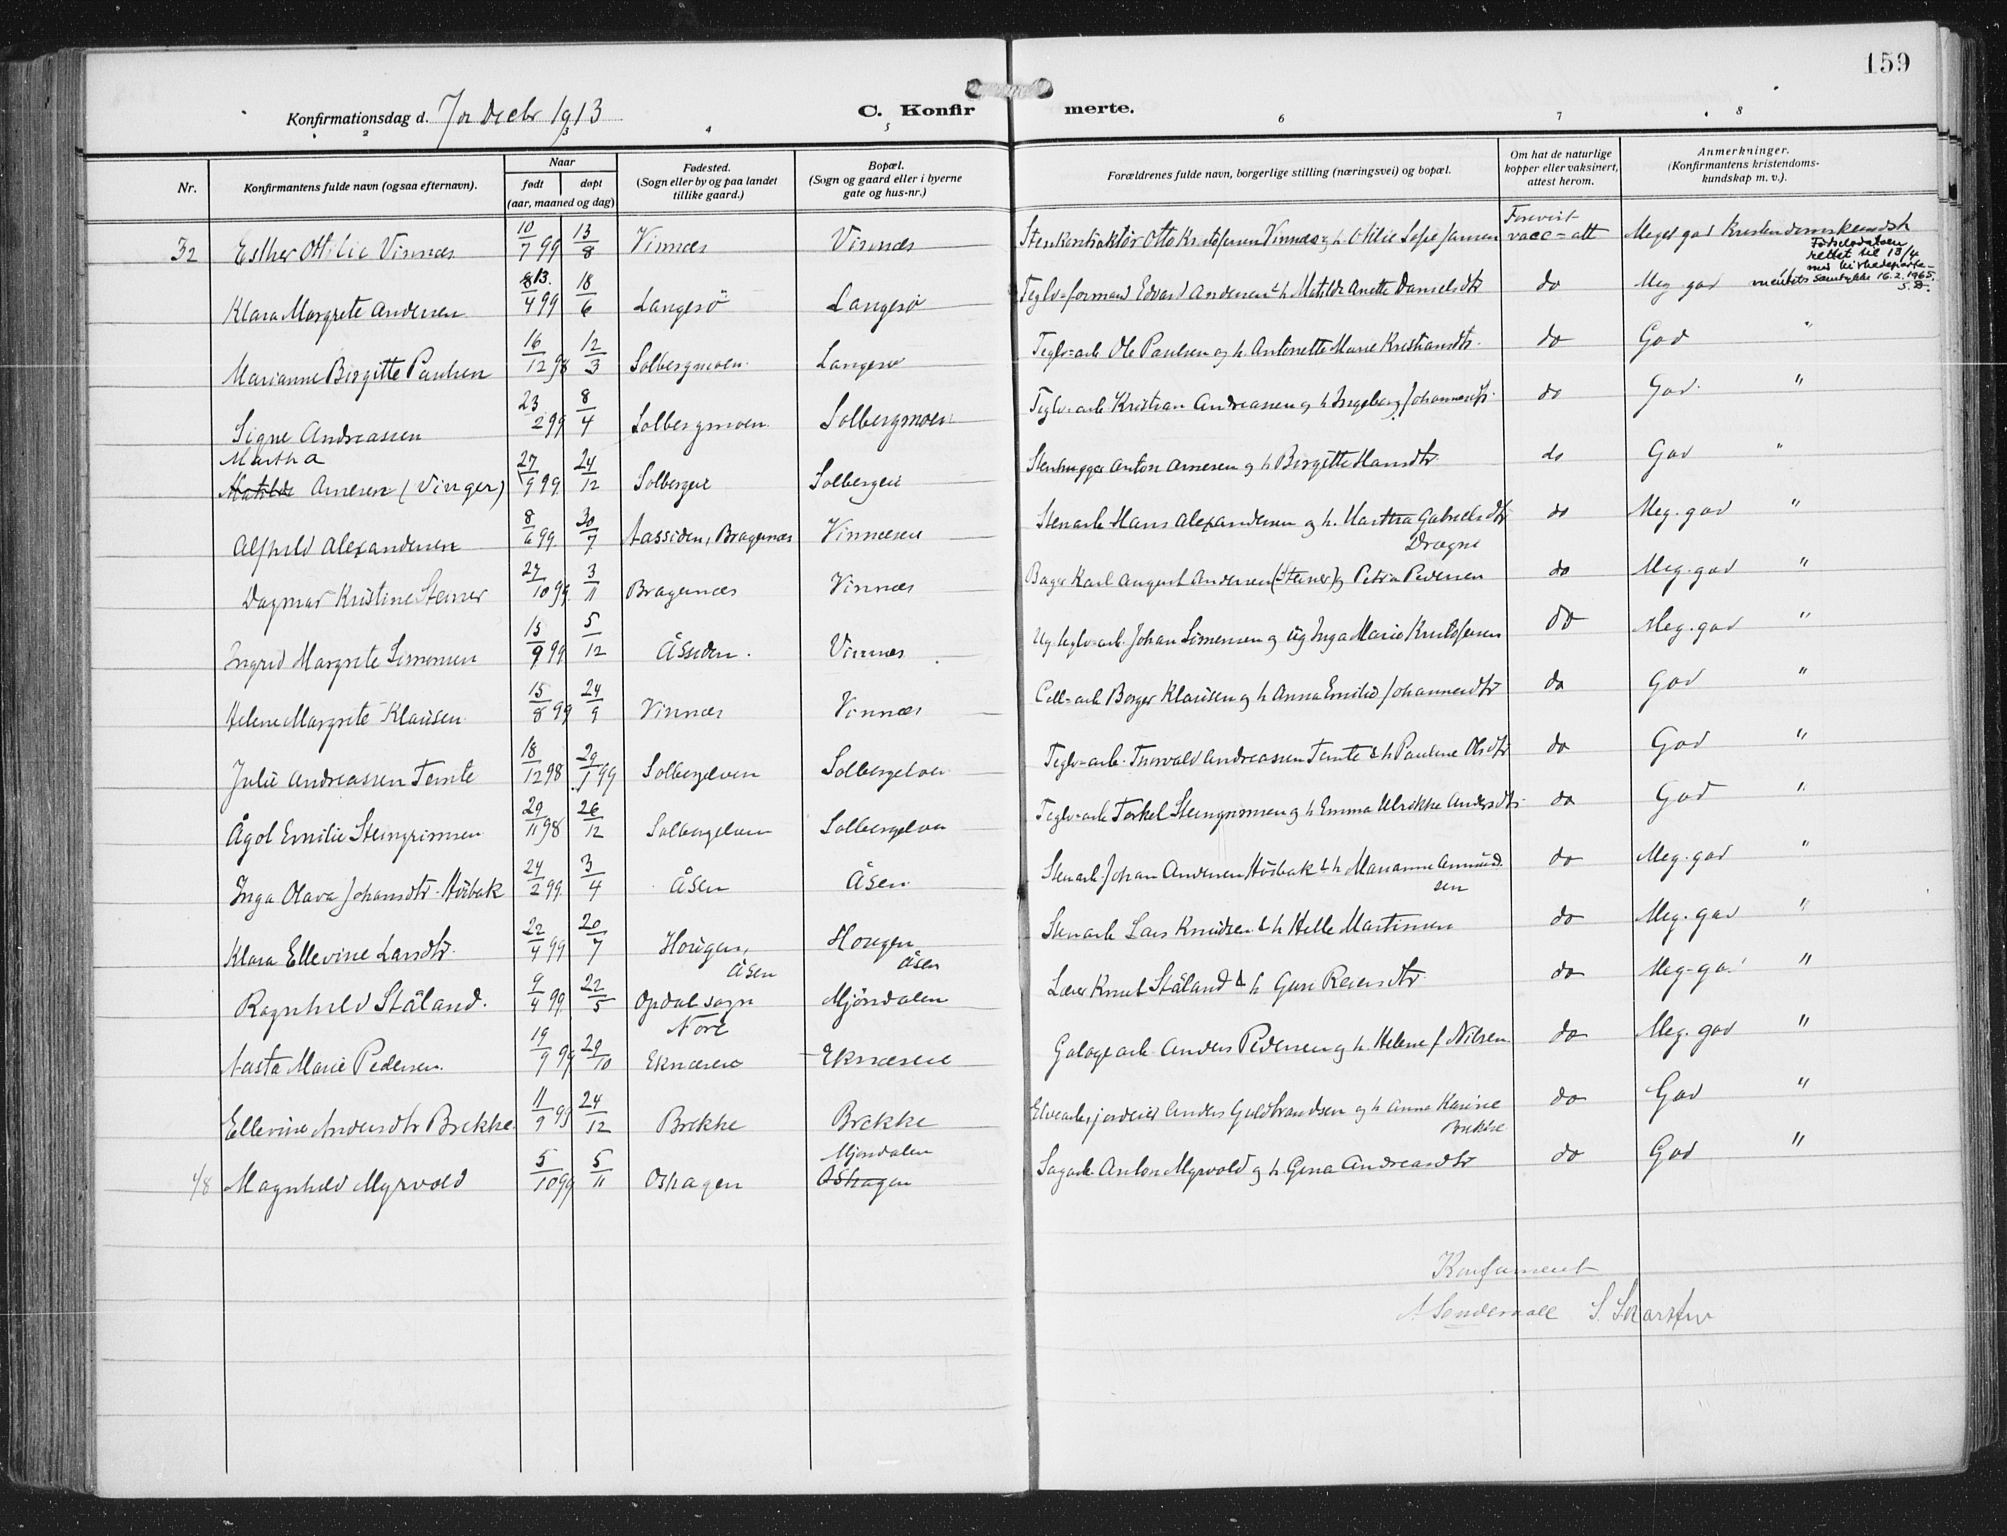 159
Konfirmationsdag d. 7de Decbr 1913
C. Konfirmerte.
2 3 4 5 6 7 8
Nr.
Konfirmantens fulde navn (ogsaa efternavn).
Naar
født
døpt
(aar, maaned og dag)
Fødested.
(Sogn eller by og paa landet
tillike gaard.)
Bopæl.
(Sogn og gaard eller i byerne
gate og hus-nr.)
Forældrenes fulde navn, borgerlige stilling (næringsvei) og bopæl.
Om hat de naturlige
kopper eller vaksinert,
attest herom.
Anmerkninger.
(Konfirmantens kristendoms-
kundskap m. v.).
32 Esther Ottilie Vinnæs 10/7 99 13/8 Vinnæs Vinnæs Stenkontraktör Otto Kristofersen Vinnæs og h. Otilie Sofie Jansen Forevist vacc=att Meget god Kristendomskundsk
Fødselsdatoen
rettet til 13/4
med kirkedeparte-
mentets samtykke 16.2.1965.
Klara Margrete Andersen 8 13./4 99 18/6 Langesö Langesö Teglv=formand Edvard Andersen & h. Matilde Anette Danielsdtr do Meg god
Marianne Birgitte Paulsen 16/12 98 12/3 Solbergmoen Langesø Teglv=arb Ole Paulsen og h. Antonette Marie Kristiansdtr. do God "
Signe Andreassen 23/2 99 8/4 Solbergmoen. Solbergmoen Teglv=arb Kristian Andreassen og h Ingeborg Johannesdtr. do God. "
Martha
Matilde Arnesen (Vinger) 27/9 99 24/12 Solbergeie Solbergeie Stenhugger Anton Arnesen og h Birgitte Hansdtr do God "
Alfhild Alexandersen 8/6 99. 30/7 Aassiden, Bragernæs Vinnæseie Stenarb Hans Alexandersen og h. Martha Gabrielsdtr do Meg. god "
Drægni
Dagmar Kristine Steiner 27/10 99 3/11 Bragernæs Vinnæs Bager Karl August Andersen (Steiner) og Petra Pedersen do Meg. god "
Ingrid Margrete Simonsen 15/9 99 5/12 Åssiden. Vinnæs Ug. teglv=arb. Johan Simensen og ug Inga Marie Kristofersen do Meg. god "
Helene Margrete Klausen 15/8 99 24/9 Vinnæs Vinnæs Cell=arb Borger Klausen og h Anna Emilie Johannesdtr do God "
Julie Andreassen Temte 18/12 98 29/1 99 Solbergelven Solbergelven Teglv=arb. Thorvald Andreassen Temte & h Pauline Olsdtr do God "
Ågot Emilie Steingrimsen 29/11 98 26/12 Solbergelven Solbergelven Teglv=arb Torkel Steingrimsen og h Emma Ulrikke Andersdtr. do God "
Inga Olava Johansdtr. Husbak 24/2 99. 3/4 Åsen Åsen. Stenarb. Johan Andersen Husbak & h Marianne Amund-
sen do Meg. god "
Klara Ellevine Larsdtr. 22/4 99 20/7 Hougen, Åsen Hougen Åsen Stenarb Lars Knudsen & h Helle Martinsen do Meg. god "
Ragnhild Ståland. 9/4 99. 22/5 Opdal sogn Nore Mjöndalen Lærer Knut Ståland & h Guri Reiersdtr do Meg. god "
Aasta Marie Pedersen. 19/9 99 29/10 Eknæseie Eknæseie Galoge arb. Anders Pedersen og h. Helene f Nilsen do Meg. god "
Ellevine Andersdtr Brekke. 11/9 99 24/12 Brekke Brekke Elvearb, jordeier Anders Guldbrandsen og h Anna Karine
Brekke do God "
48 Magnhild Myrvold 5/10 99 5/11 Oshagen Mjöndalen
Oshagen Sagarb. Anton Myrvold og h. Gina Andreasdtr do God "